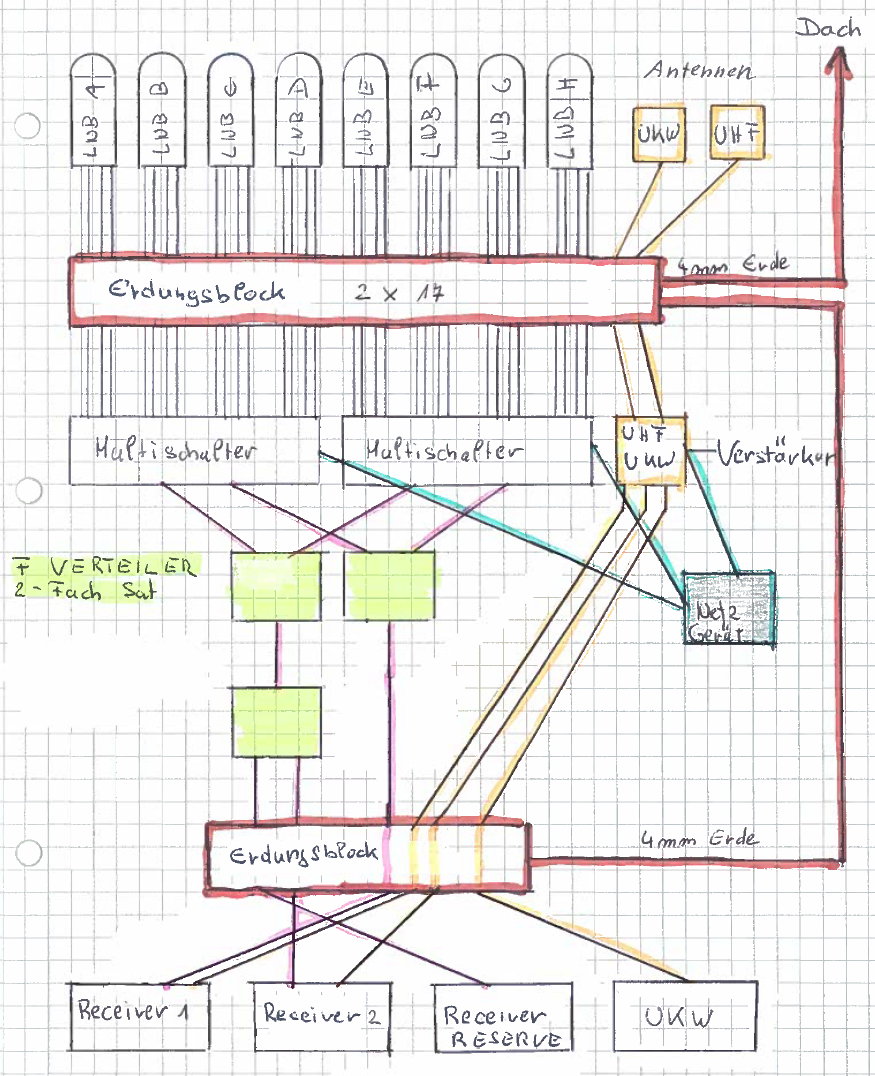 Dach
Antennen
LNB A
LNB B
LNB C
LNB D
LNB E
LNB F
LNB G
LNB H
UKW
UHF
4mm Erde
Erdungsblock 2 x 17
Multischalter
Multischalter
UHF
UKW
Verstärker
F VERTEILER
2-Fach Sat
Netz
Gerät
Erdungsblock
4mm Erde
Receiver 1
Receiver 2
Receiver
RESERVE
UKW